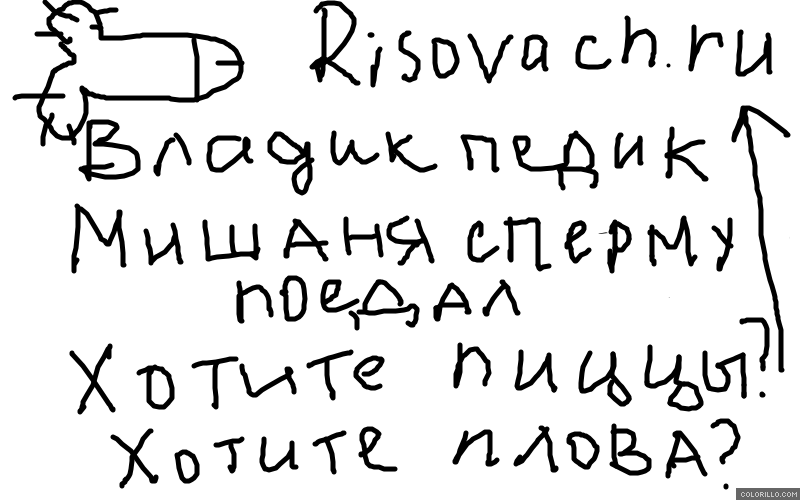 Risovach.ru
Владик педик
Мишаня сперму
поедал
Хотите пиццы?
Хотите плова?
COLORILLO.COM